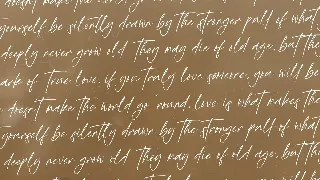 doesn't make the world go round. love is what makes the
yourself be silently drawn by the stronger pull of what
deeply never grow old. They may die of old age, but the
ack of true love. if you truly love someone, you will be
doesn't make the world go round. love is what makes the
yourself be silently drawn by the stronger pull of what
deeply never grow old. They may die of old age, but th